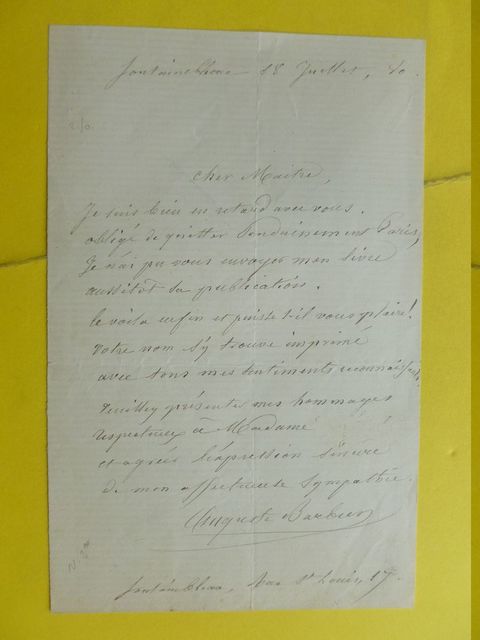 fontainebleau 18 Juillet, 80.
Cher Maitre,
Je suis bien en retard avec vous.
obligé de quitter soudainement Paris,
Je n'ai pu vous envoyer mon livre
aussitôt sa publication.
le voila enfin et puisse t-il vous plaire!
votre nom s'y trouve imprimé
avec tous mes sentiments reconnaissants,
veuillez présenter mes hommages
respectueux à Madame
et agréer l'expression sincère
de mon affectueuse sympathie.
Auguste Barbier
fontainebleau, rue St Louis, 17.